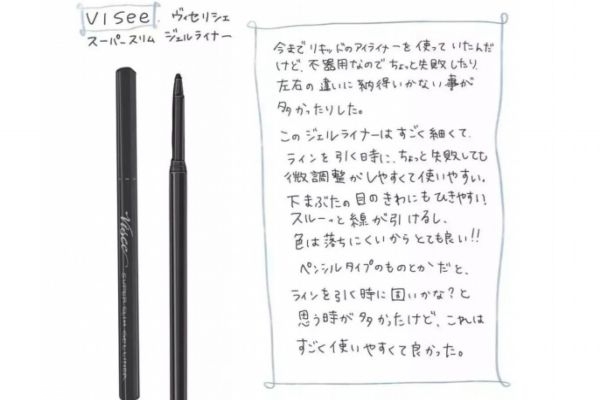 Visee ヴィセリシェ
スーパースリム ジェルライナー
Visee SUPER SLIM GEL LINER
今までリキッドのアイライナーを使っていたんだ
けど、不器用なのでちょっと失敗したり、
左右の違いに納得いかない事が
多かったりした。
このジェルライナーはすごく細くて、
ラインを引く時に、ちょっと失敗しても
微調整がしやすくて使いやすい。
下まぶたの目のきわにもひきやすい!
スルーッと線が引けるし、
色は落ちにくいからとても良い!!
ペンシルタイプのものとかだと、
ラインを引く時に固いかな?と
思う時が多かったけど、これは
すごく使いやすくて良かった。